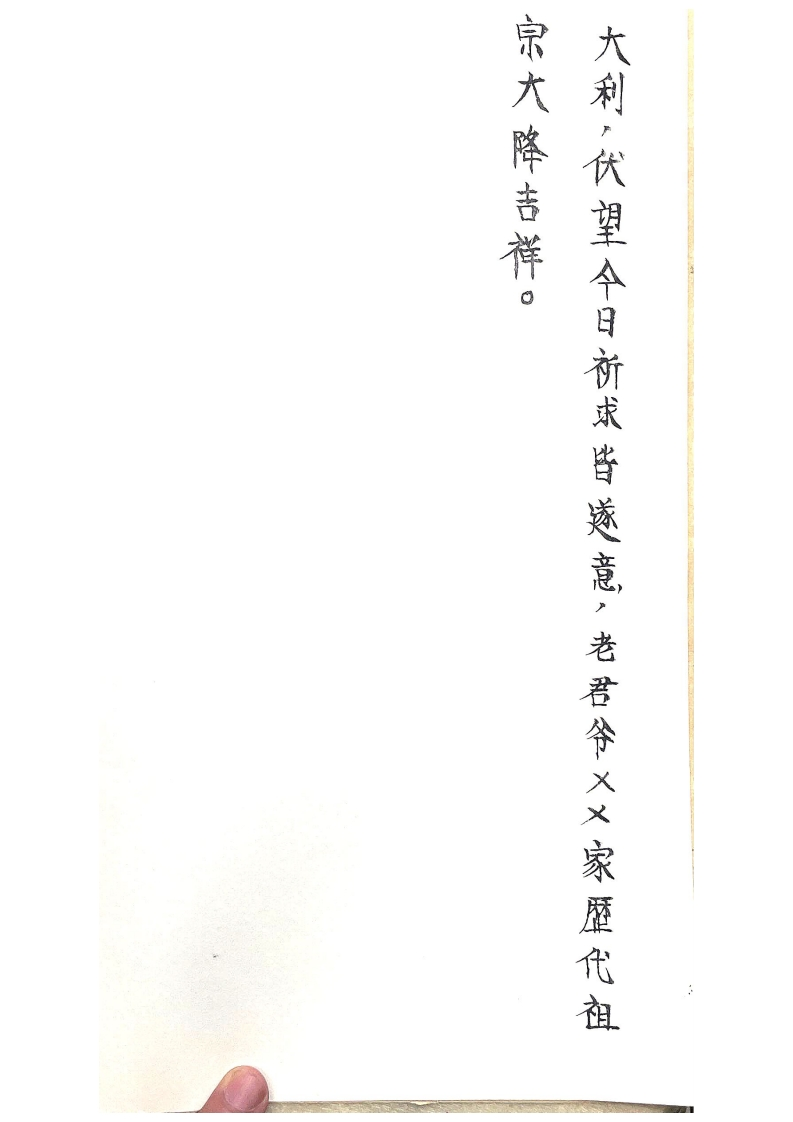 大利，伏望今日祈求皆遂意，老君爷××家歴代祖
宗大降吉祥。